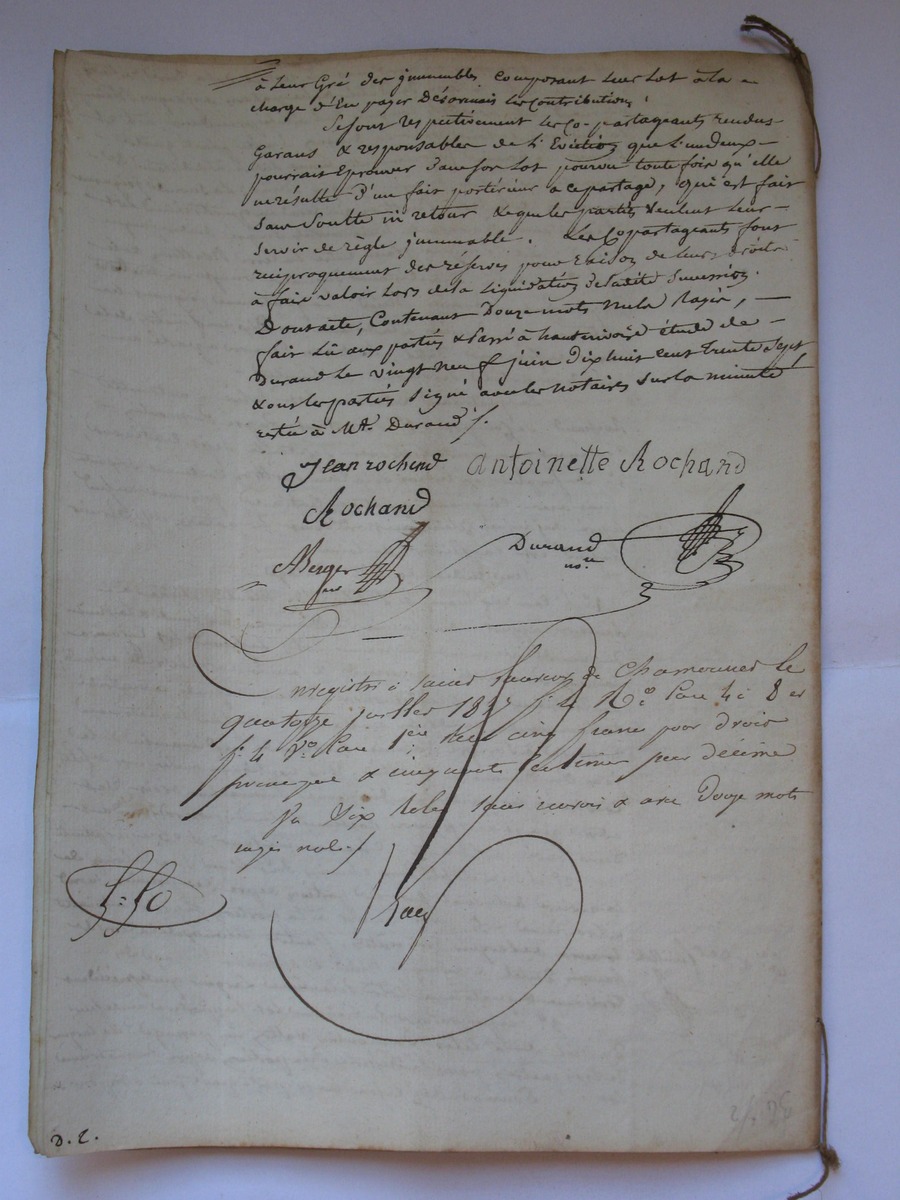 à Leur Gré des jmmeubles composant Leur Lot à la
charge d'En payer Désormais Les Contributions.
Se font respectivement les Co-partageants rendus
Garans & responsables de L'Eviction que L'un deux
pourrait Eprouver dans son Lot pourvu toute fois qu'elle
ne résulte D'un fait postérieur à ce partage, qui est fait
sans Soulte ni retour & que les parties veulent Leur
servir de règle jmmuable. Les Copartageants font
réciproquement des réserves pour raison de leurs droits
à faire valoir Lors de la Liquidation de ladite Succession.
Dont acte, Contenant Douze mots nuls rayés,
fait Lû aux parties & Passé à hauterivoire étude de
Durand Le vingt neuf juin Dix huit cent trente Sept
& ont les parties signé avec les notaires sur la minute
restée à Mt. Durand /.
Jean rochand Antoinette Rochand
Rochand
Merger Durand
nore
Enregistré à saint Laurent de Chamousset le
quatorze juillet 1837 fo 4 Ro Case 4 à 8 et
fo 4 Vo Case 1ère reçu cinq francs pour droit
principal & cinquante centimes pour décime
Sur Dix Roles Sans renvois & avec Douze mots
rayés nuls /
D. 2.